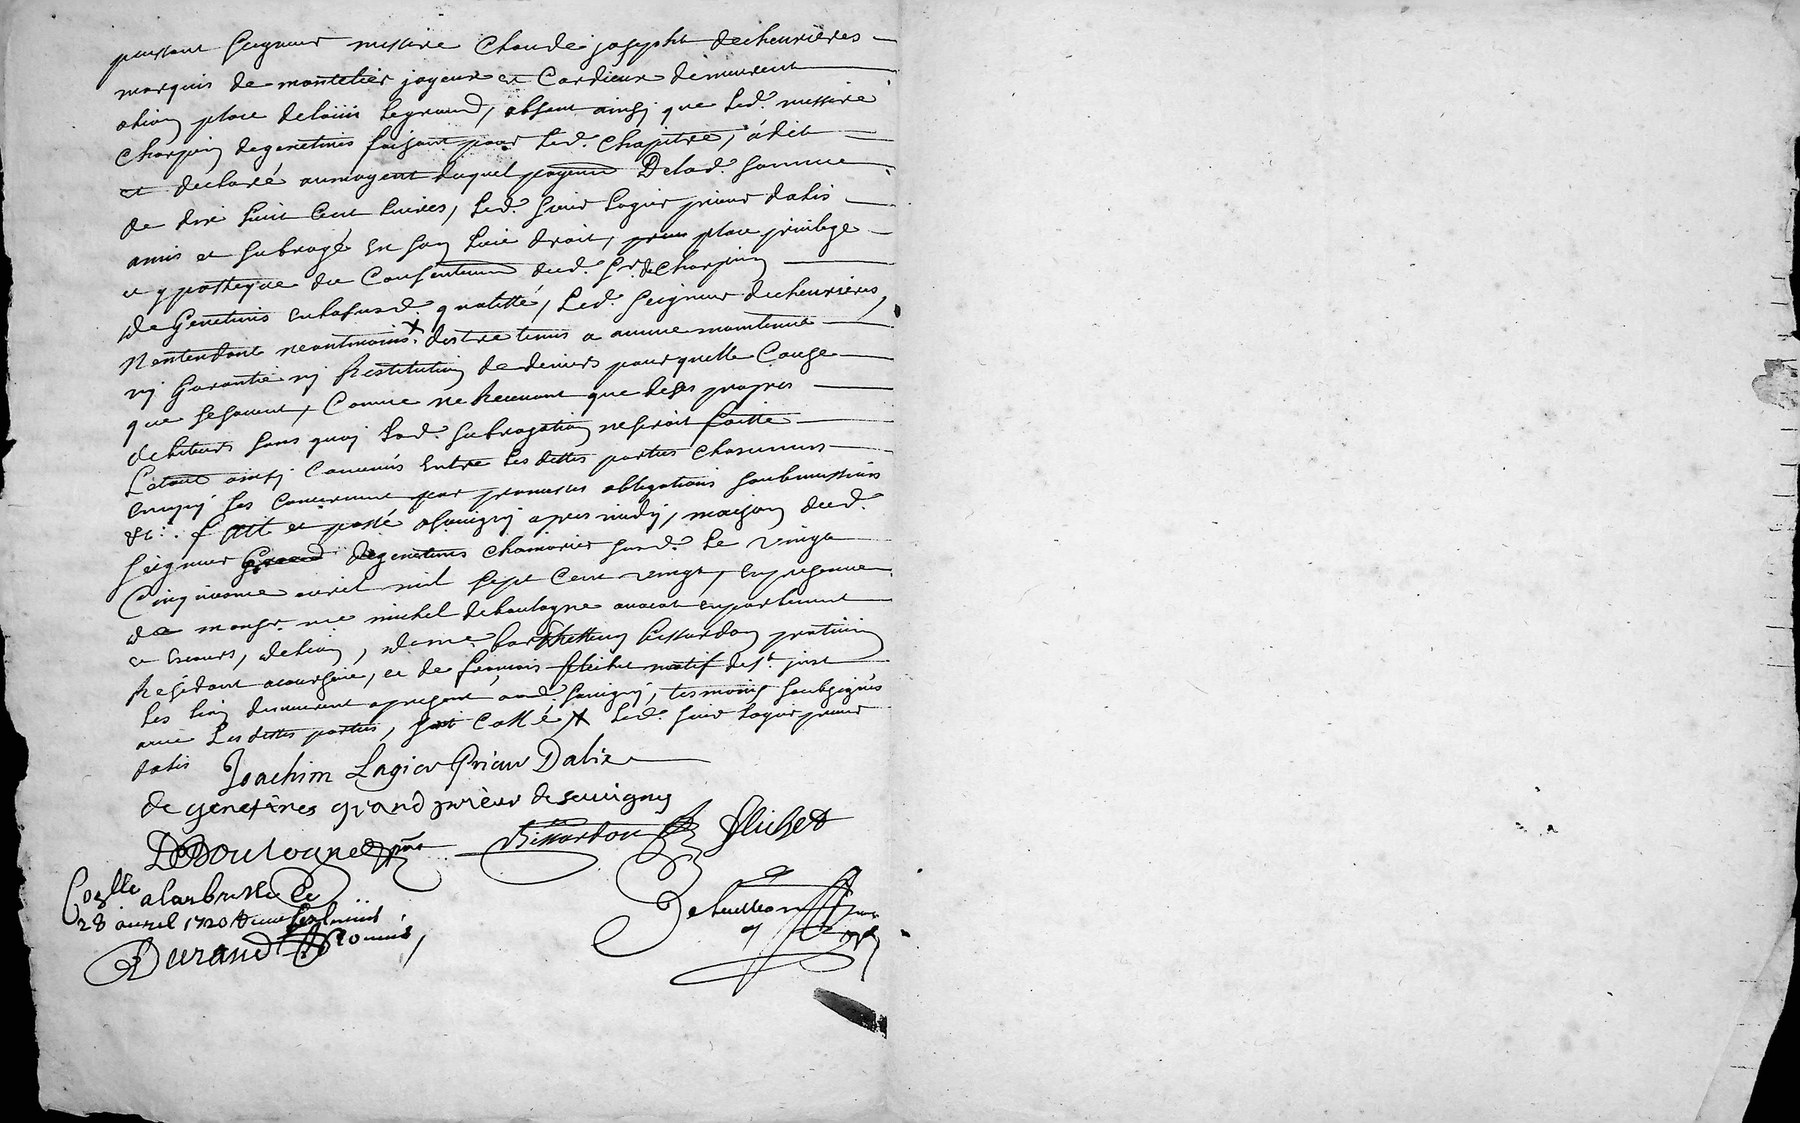 puissant seigneur messire Claude joseph decheurières
marquis de montelier joyeux et Cordieux demeurent
alion place delouis legrand, absent ainsy que led. messire
Charpin degenetines faisant pour led. Chapitre, à dit
et declaré aumoyent duquel payem Delad. somme
de dix huit Cent livres, led. sieur Logier prieur dalis
amis et subrogé en son lieu droit, place privilege
et ypotheque du Consentem dud. Sr. de Charpin
de Genetines qualitté, Led. seigneur decheurieres,
Nentendant neantmoins x destre tenus a aucune maintenue
ny Garantie ny Restitution de deniers pour quelle Cause
que se soient, Comme ne Recevant que de ses propres
debiteurs sans quoy lad. subrogation ne seroit faitte
Letout ainsy Convenus Entre les dittes parties chacunnes
les concernant par promesses obligations soubmissions
&c. fait et passé a savigny apres midy, maison dud.
seigneur degenetines chamarier susd. le vingt
Cinquieme avril mil sept Cent vingt, en presence
de monsr. me michel deboulogne avocat en parlement
et Cours, delion, de me barthellemy bissardon praticien
Residant , et de françois flichet de st. just
les lion demeurent apresent aud. savigny, tesmoins soubsignés
avec Les dittes parties, x led. sieur Logier prieur
dalis Joachim Logier Prieur Dalix
de genetines grand prieur de savigny
DeBoulogne Bissardon flichet
Conlle alarbresle le
28 avril 1720
Durand Commis,